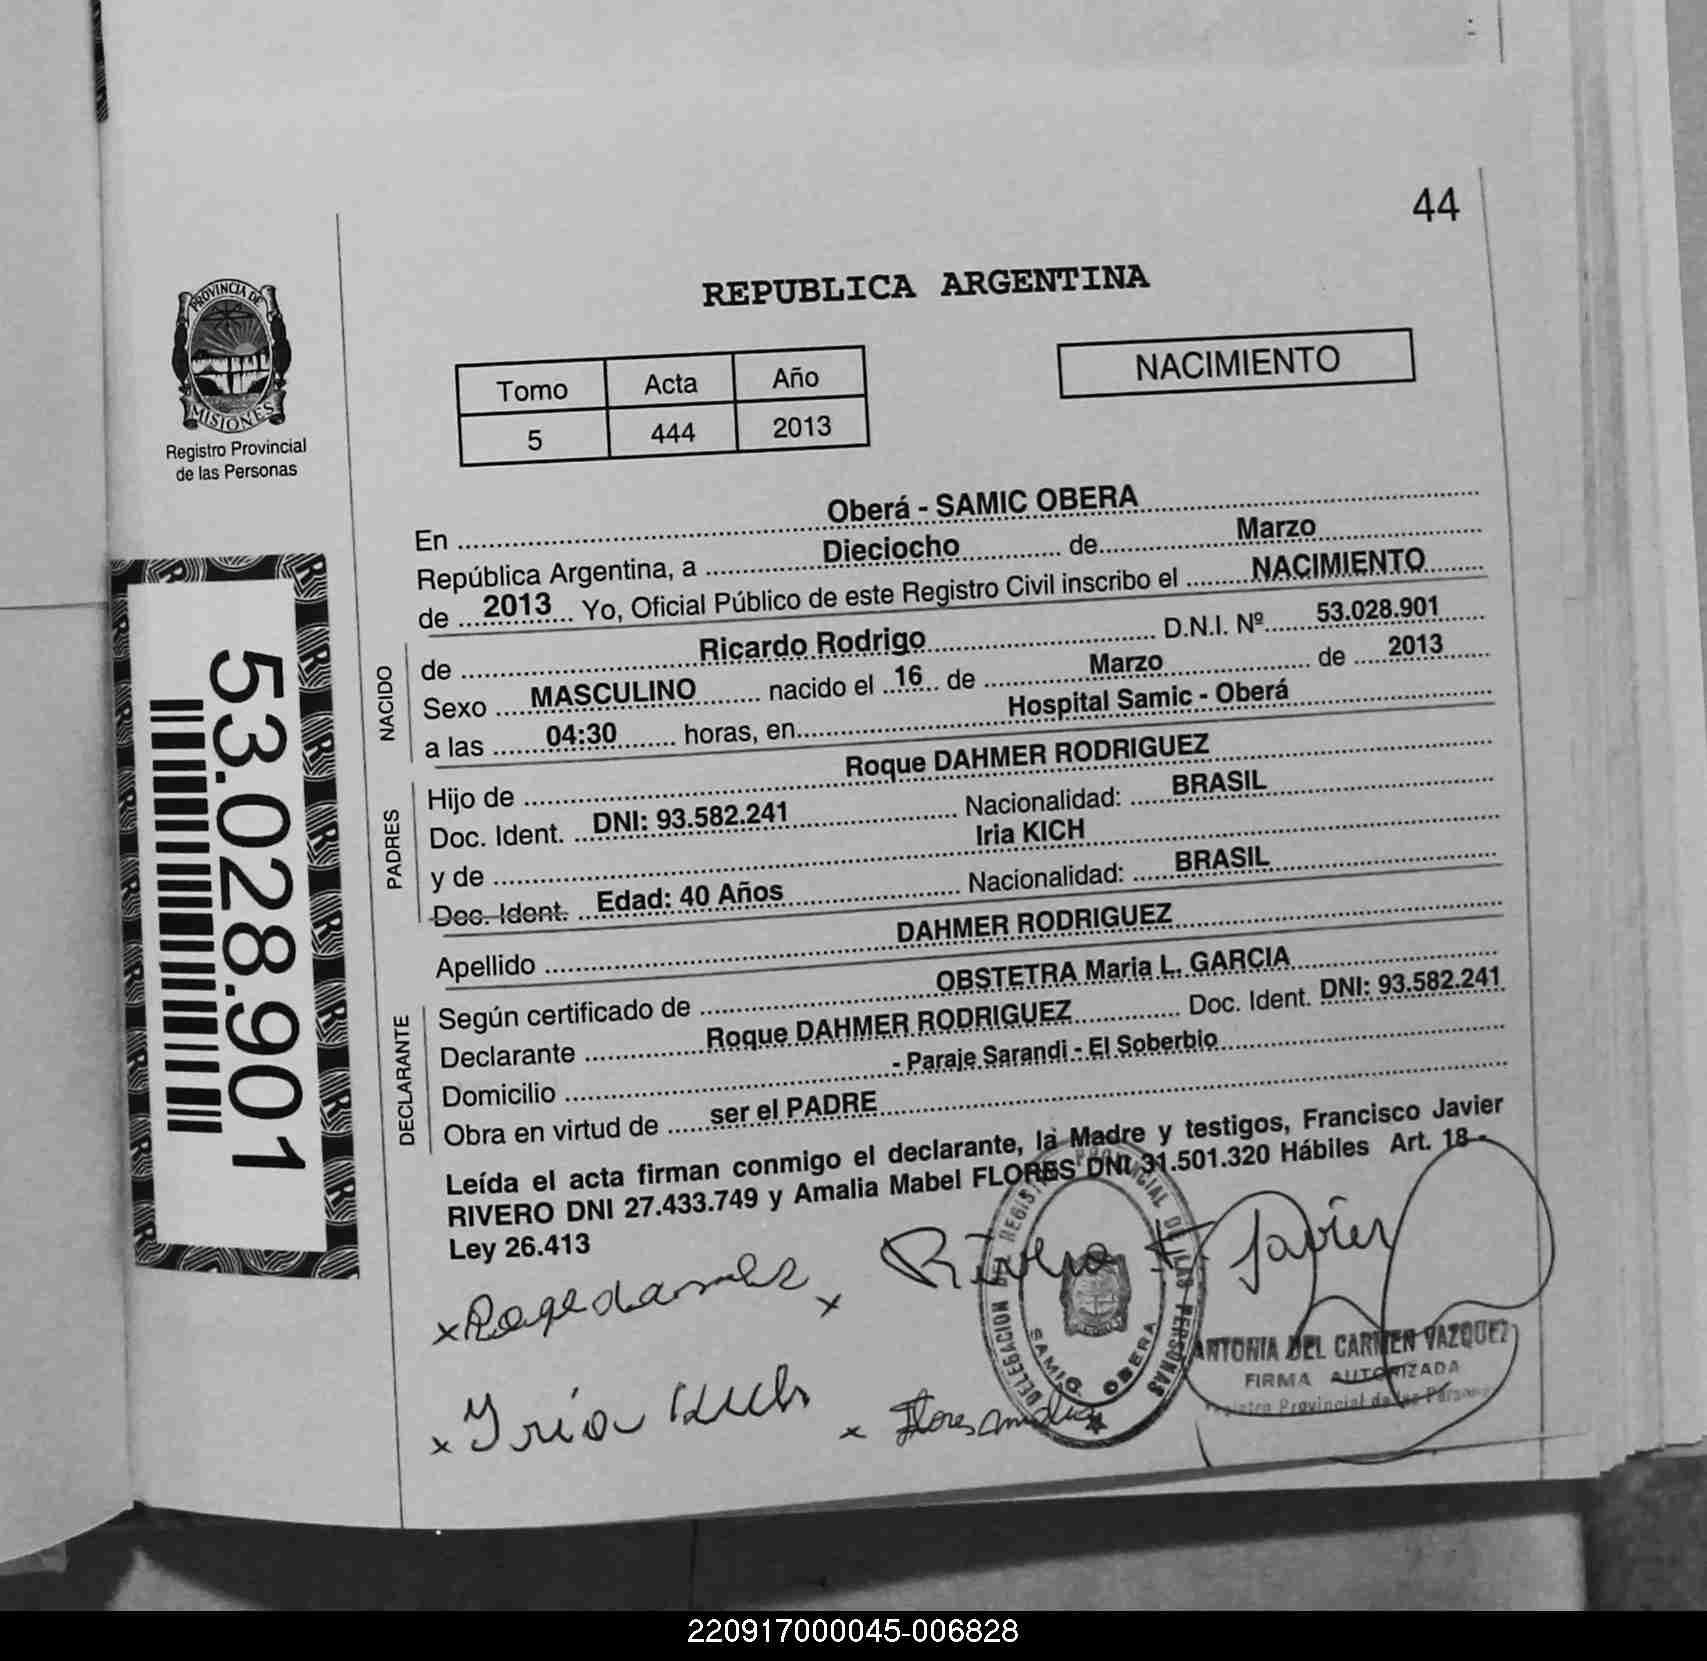 44
PROVINCIA DE
MISIONES
Registro Provincial
de las Personas
REPUBLICA ARGENTINA
Tomo Acta Año
5 444 2013
NACIMIENTO
53.028.901
En Oberá - SAMIC OBERA
República Argentina, a Dieciocho de Marzo
de 2013 Yo, Oficial Público de este Registro Civil inscribo el NACIMIENTO
NACIDO
de Ricardo Rodrigo D.N.I. Nº 53.028.901
Sexo MASCULINO nacido el 16 de Marzo de 2013
a las 04:30 horas, en Hospital Samic - Oberá
PADRES
Hijo de Roque DAHMER RODRIGUEZ
Doc. Ident. DNI: 93.582.241 Nacionalidad: BRASIL
y de Iria KICH
Doc. Ident. Edad: 40 Años Nacionalidad: BRASIL
Apellido DAHMER RODRIGUEZ
DECLARANTE
Según certificado de OBSTETRA Maria L. GARCIA
Declarante Roque DAHMER RODRIGUEZ Doc. Ident. DNI: 93.582.241
Domicilio - Paraje Sarandi - El Soberbio
Obra en virtud de ser el PADRE
Leída el acta firman conmigo el declarante, la Madre y testigos, Francisco Javier
RIVERO DNI 27.433.749 y Amalia Mabel FLORES DNI 31.501.320 Hábiles Art. 18 -
Ley 26.413
x x Rivero F. Javier
DELEGACION DEL REGISTRO PROVINCIAL DE LAS PERSONAS
SAMIC OBERA
ANTONIA DEL CARMEN VAZQUEZ
FIRMA AUTORIZADA
Registro Provincial de las Personas
x Iria x Flores Amalia
220917000045-006828